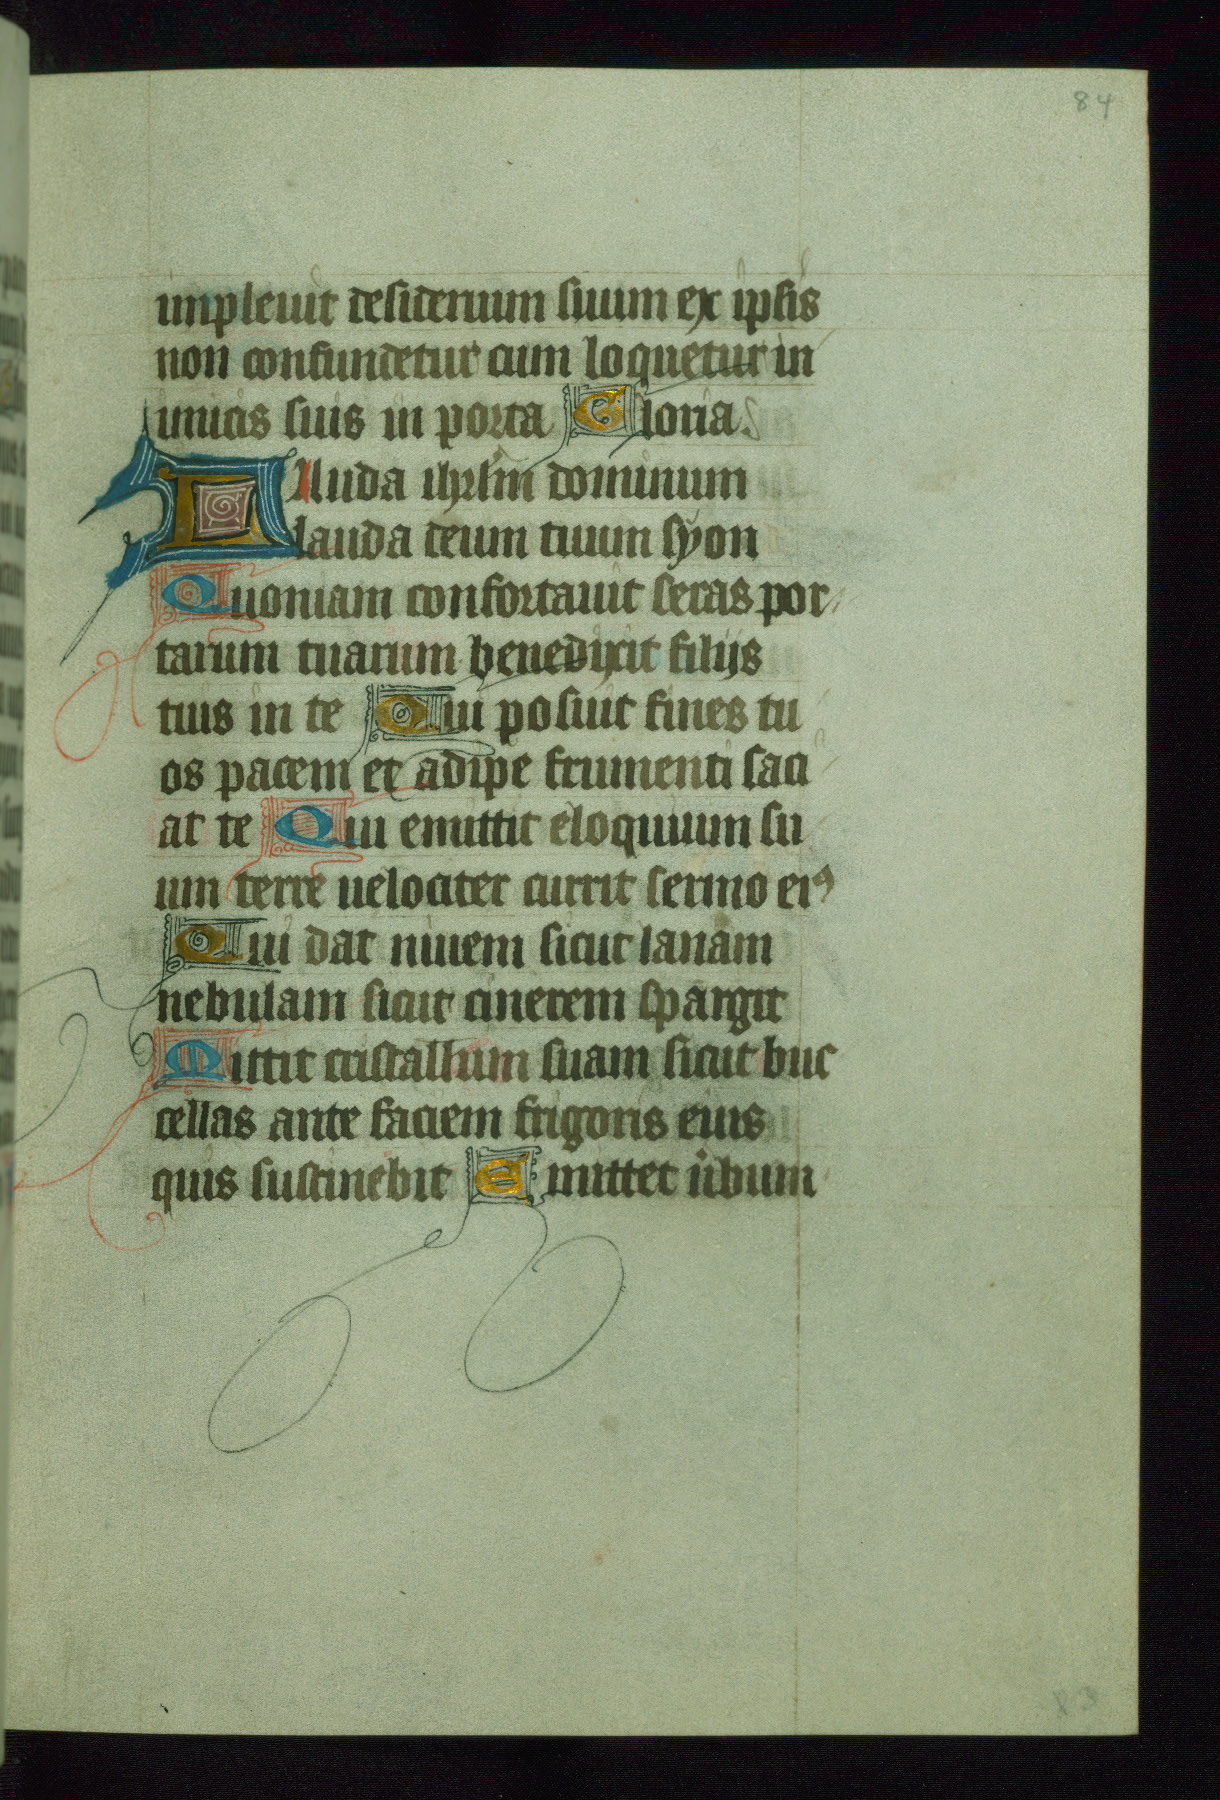 84
impleuit desiderium suum ex ipsis
non confundetur cum loquetur in
imicis suis in porta Gloria
Lauda ihrlm dominum
lauda deum tuum syon
Quoniam confortauit seras por
tarum tuarum benedixit filijs
tuis in te Qui posuit fines tu
os pacem et adipe frumenti saci
at te Qui emittit eloquium su
um terre uelociter currit sermo eiꝰ
Qui dat niuem sicut lanam
nebulam sicut cinerem spargit
Mittit cristallum suam sicut buc
cellas ante faciem frigoris eius
quis sustinebit Emittet ubum